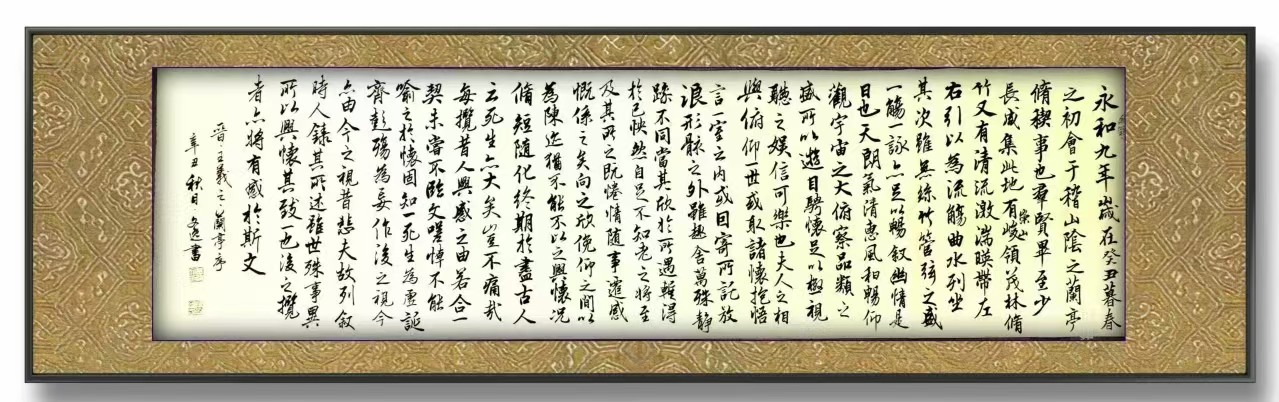 永和九年歲在癸丑暮春
之初會于稽山陰之蘭亭
脩稧事也羣賢畢至少
長咸集此地有崇山峻領茂林脩
竹又有清流激湍暎帶左
右引以為流觴曲水列坐
其次雖無絲竹管弦之盛
一觴一詠亦足以暢叙幽情是
日也天朗氣清惠風和暢仰
觀宇宙之大俯察品類之
盛所以遊目騁懷足以極視
聽之娛信可樂也夫人之相
與俯仰一世或取諸懷抱悟
言一室之內或因寄所託放
浪形骸之外雖趣舍萬殊靜
躁不同當其欣於所遇蹔得
於己怏然自足不知老之將至
及其所之既惓情隨事遷感
慨係之矣向之欣俛仰之間以
為陳迹猶不能不以之興懷況
脩短隨化終期於盡古人
云死生亦大矣豈不痛哉
每攬昔人興感之由若合一
契未嘗不臨文嗟悼不能
喻之於懷固知一死生為虛誕
齊彭殤為妄作後之視今
亦由今之視昔悲夫故列叙
時人錄其所述雖世殊事異
所以興懷其致一也後之攬
者亦將有感於斯文
晉王羲之蘭亭序
辛丑秋日逸書